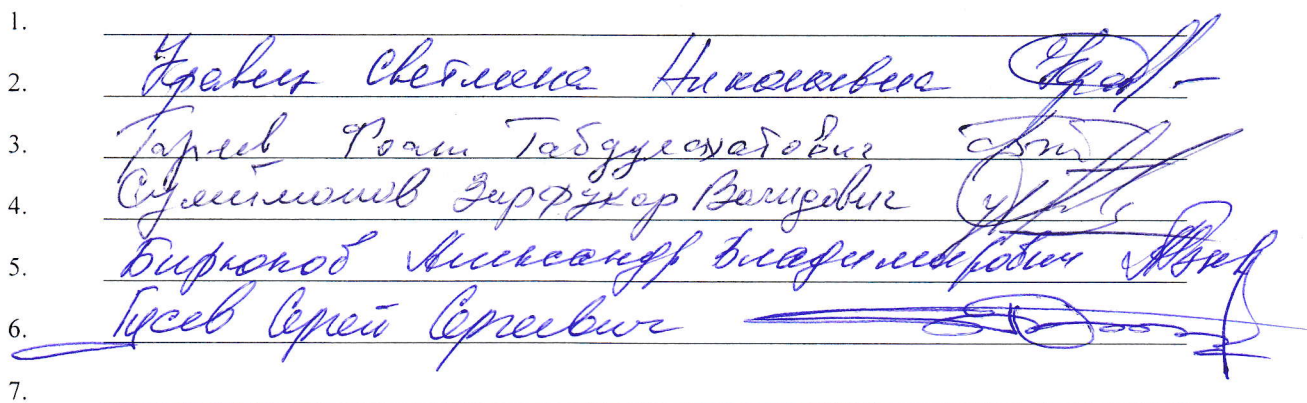 1.
2. Кравец Светлана Николаевна
3. Гареев Габдулахатович
4. Сулейманов Зирфукар Вагидович
5. Бирюков Александр Владимирович
6. Гусев Сергей Сергеевич
7.